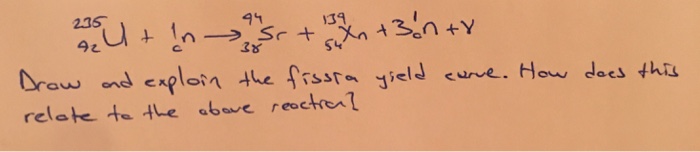 ²³⁵₉₂U + ¹₀n → ⁹⁴₃₈Sr + ¹³⁹₅₄Xn + 3¹₀n + γ
Draw and explain the fission yield curve. How does this
relate to the above reaction?